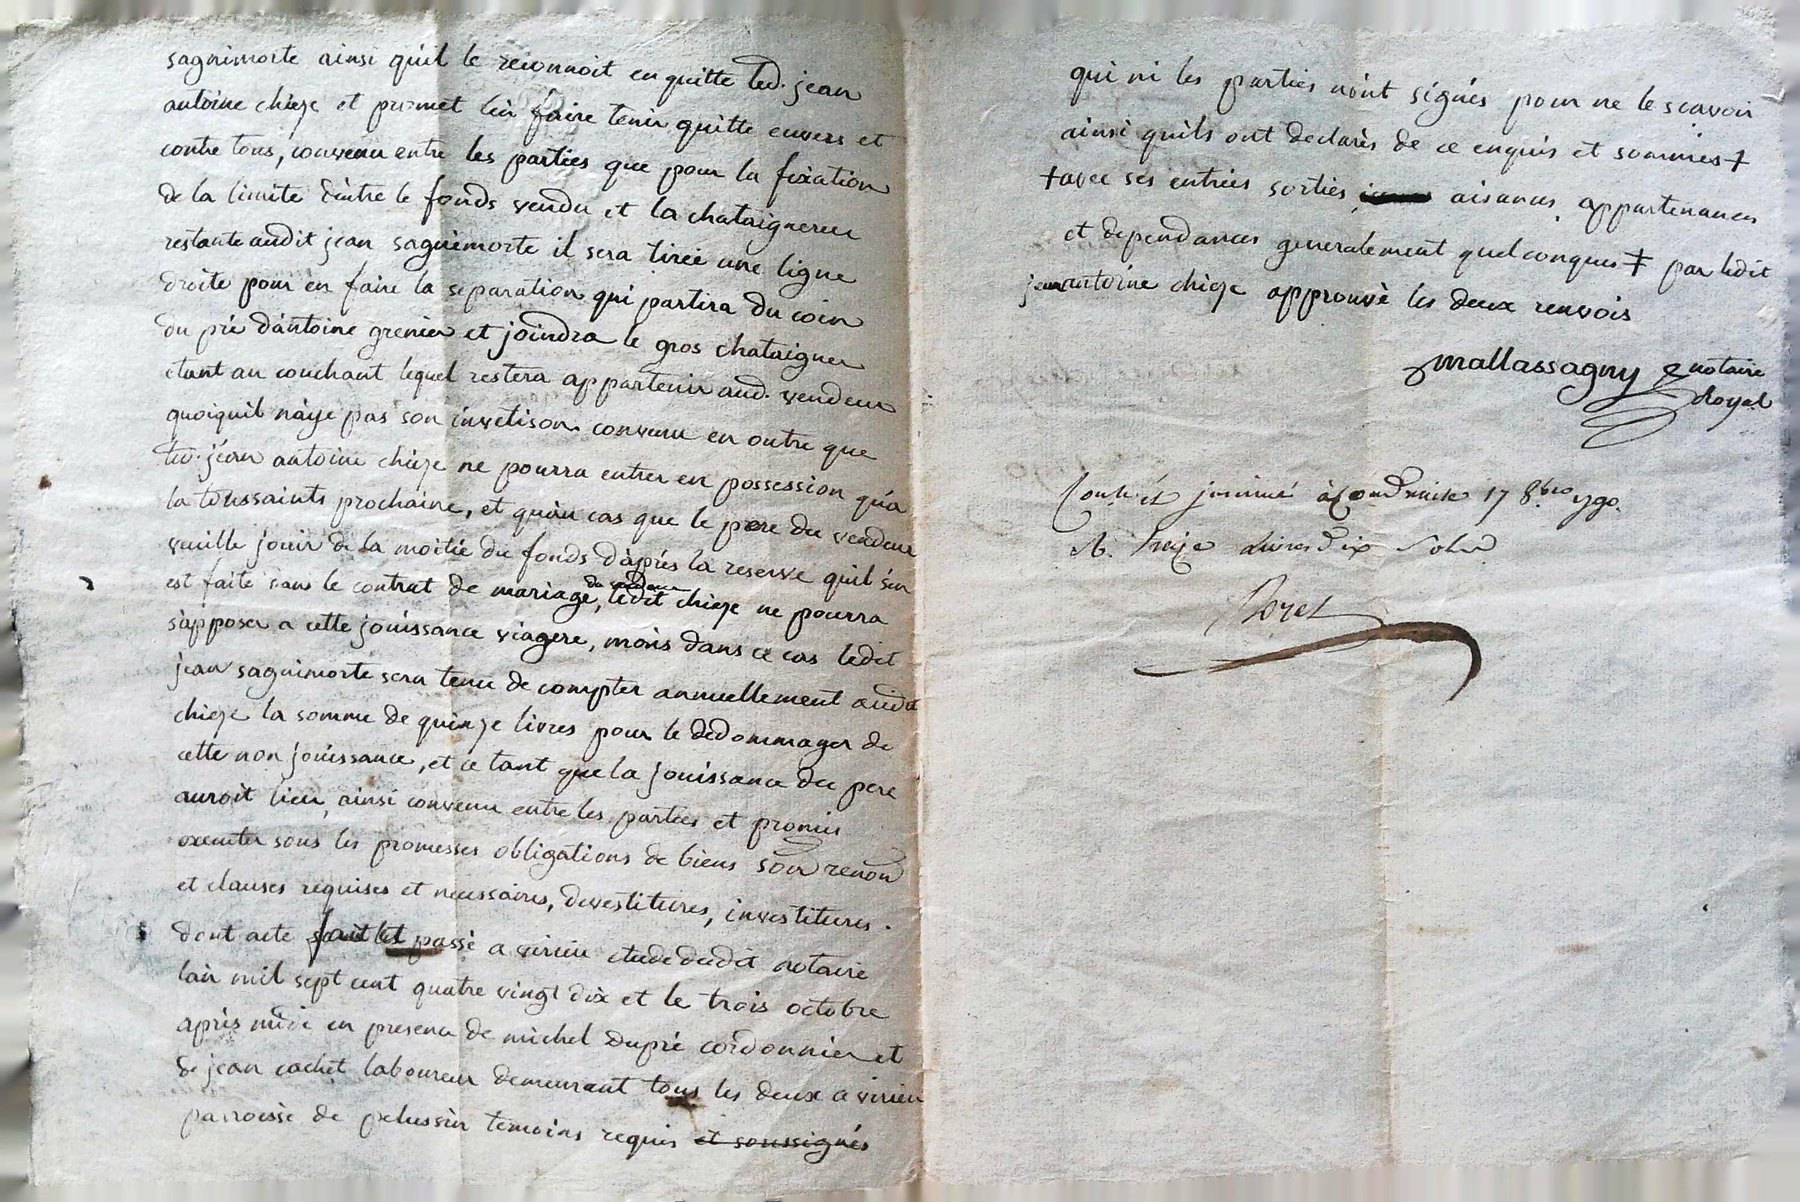 sagnimorte ainsi qu'il le reconnoit en quitte led. jean
antoine chieze et promet l'en faire tenir quitte envers et
contre tous, convenu entre les parties que pour la fixation
de la limite d'entre le fonds vendu et la chataignereu
restante audit jean sagnimorte il sera tirée une ligne
droite pour en faire la séparation qui partira du coin
du pré d'antoine grenier et joindra le gros chataigner
étant au couchant lequel restera appartenir aud. vendeur
quoiquil n'aÿe pas son invetison convenu en outre que
led. jean antoine chieze ne pourra entrer en possession qu'a
la toussaints prochaine, et qu'au cas que le pere du vendeur
veuille jouir de la moitié du fonds d'après la reserve quil s'en
est faite dans le contrat de mariage, du vendeur ledit chieze ne pourra
s'apposer a cette jouissance viagere, mais dans ce cas ledit
jean sagnimorte sera tenu de compter annuellement audit
chieze la somme de quinze livres pour le dedommager de
cette non jouissance, et ce tant que la jouissance du pere
auroit lieu, ainsi convenu entre les parties et promis
executer sous les promesses obligations de biens son renon
et clauses requises et necessaires, devestitures, investitures.
dont acte fait et passé a virieu etude dudit notaire
l'an mil sept cent quatre vingt dix et le trois octobre
après midi en presence de michel dupré cordonnier et
de jean cachet laboureur demeurant tous les deux a virieu
parroisse de pelussin temoins requis et soussignés
qui ni les parties n'ont signés pour ne le scavoir
ainsi quils ont declarés de ce enquis et sommés ‡
‡ avec ses entrées sorties aisances, appartenances
et dependances generalement quelconques ‡ par ledit
jean antoine chieze approuvé les deux renvois
Mallassagny notaire
royal
Conlé et insinué à Condrieu 17 8bre 1790.
R. treize livres dix sols